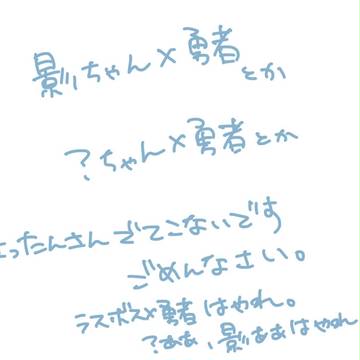 影ちゃん×勇者とか
?ちゃん×勇者とか
ったんさんどてこないです
ごめんなさい。
ラスボス×勇者はやれ。
?ああ、影ああはやれ